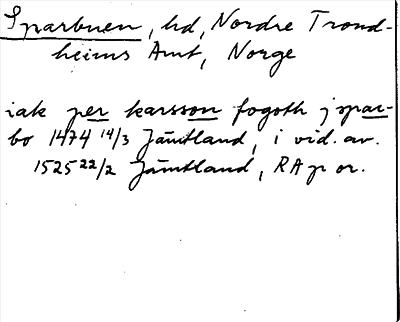 Sparbuen, hd, Nordre Trond-
heims Amt, Norge
iak per karsson fogoth j spar-
bo 1474 14/3 Jämtland, i vid. av.
1525 22/2 Jämtland, RAp or.